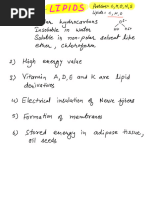 LIPIDS
Protein= C, H, O, N, S
Lipids= C, H, O
hydrocarbons
Insoluble in water
Soluble in non-polar solvent like
ether, chloroform
2) High energy value
3) Vitamin A, D, E and K are lipid
derivatives
4) Electrical insulation of nerve fibers
5) Formation of membranes
6) Stored energy in adipose tissue,
oil seeds